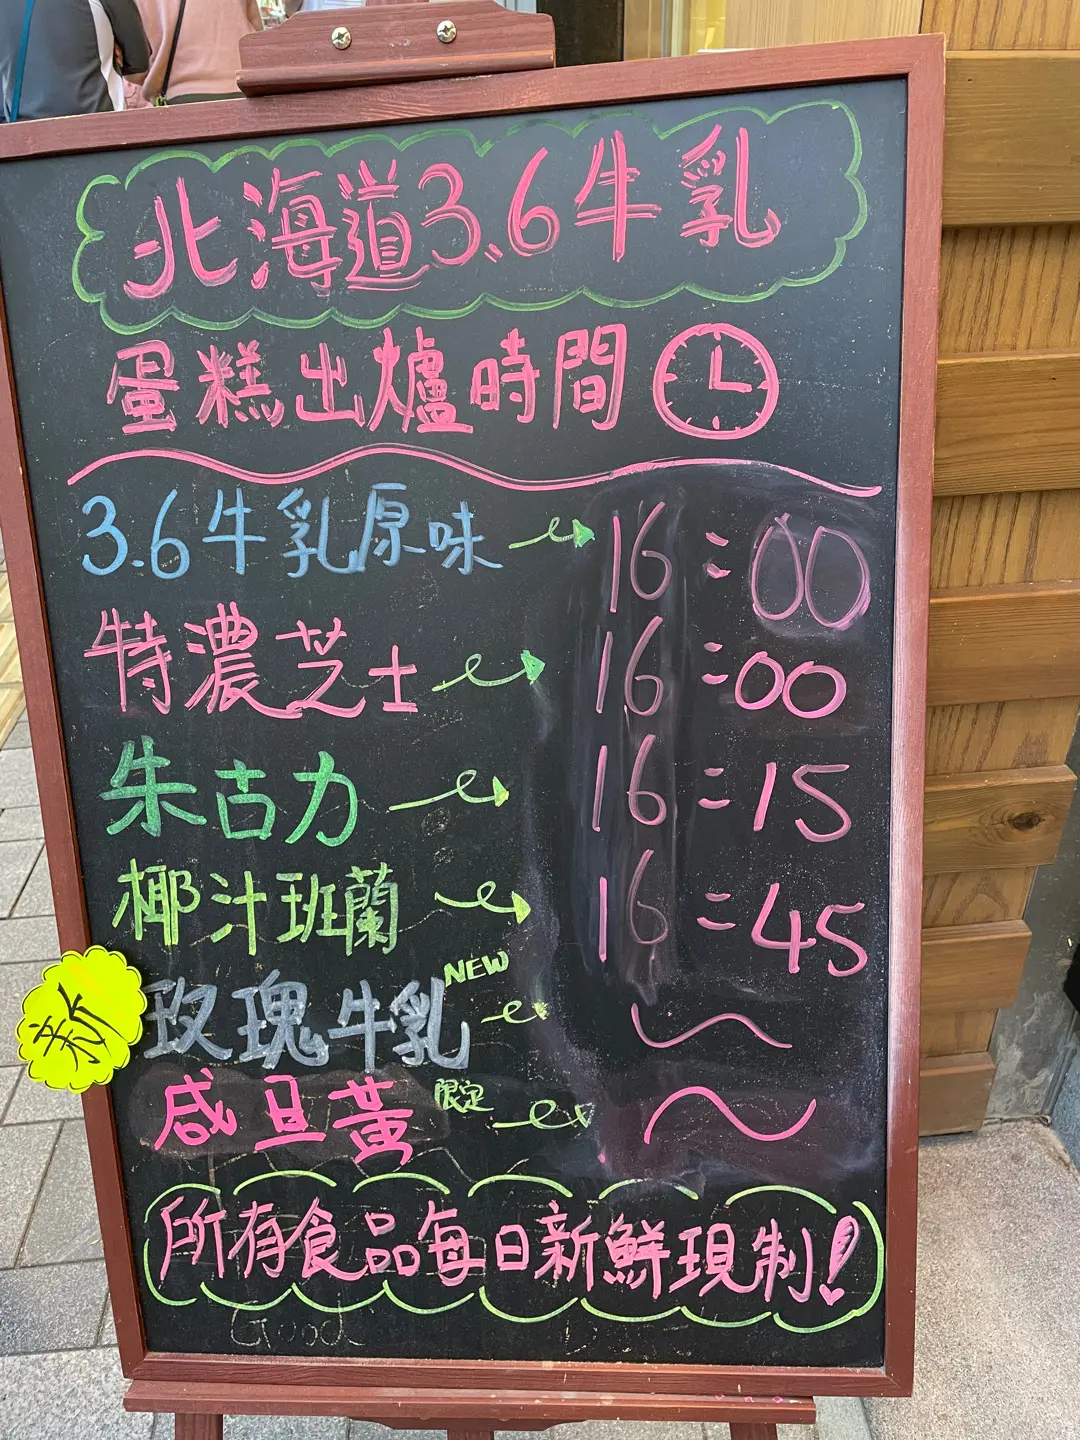 北海道3.6牛乳
蛋糕出爐時間
3.6牛乳原味 16:00
特濃芝士 16:00
朱古力 16:15
椰汁班蘭 16:45
新 玫瑰牛乳 NEW ~
咸旦黃 限定 ~
所有食品每日新鮮現制!
Good